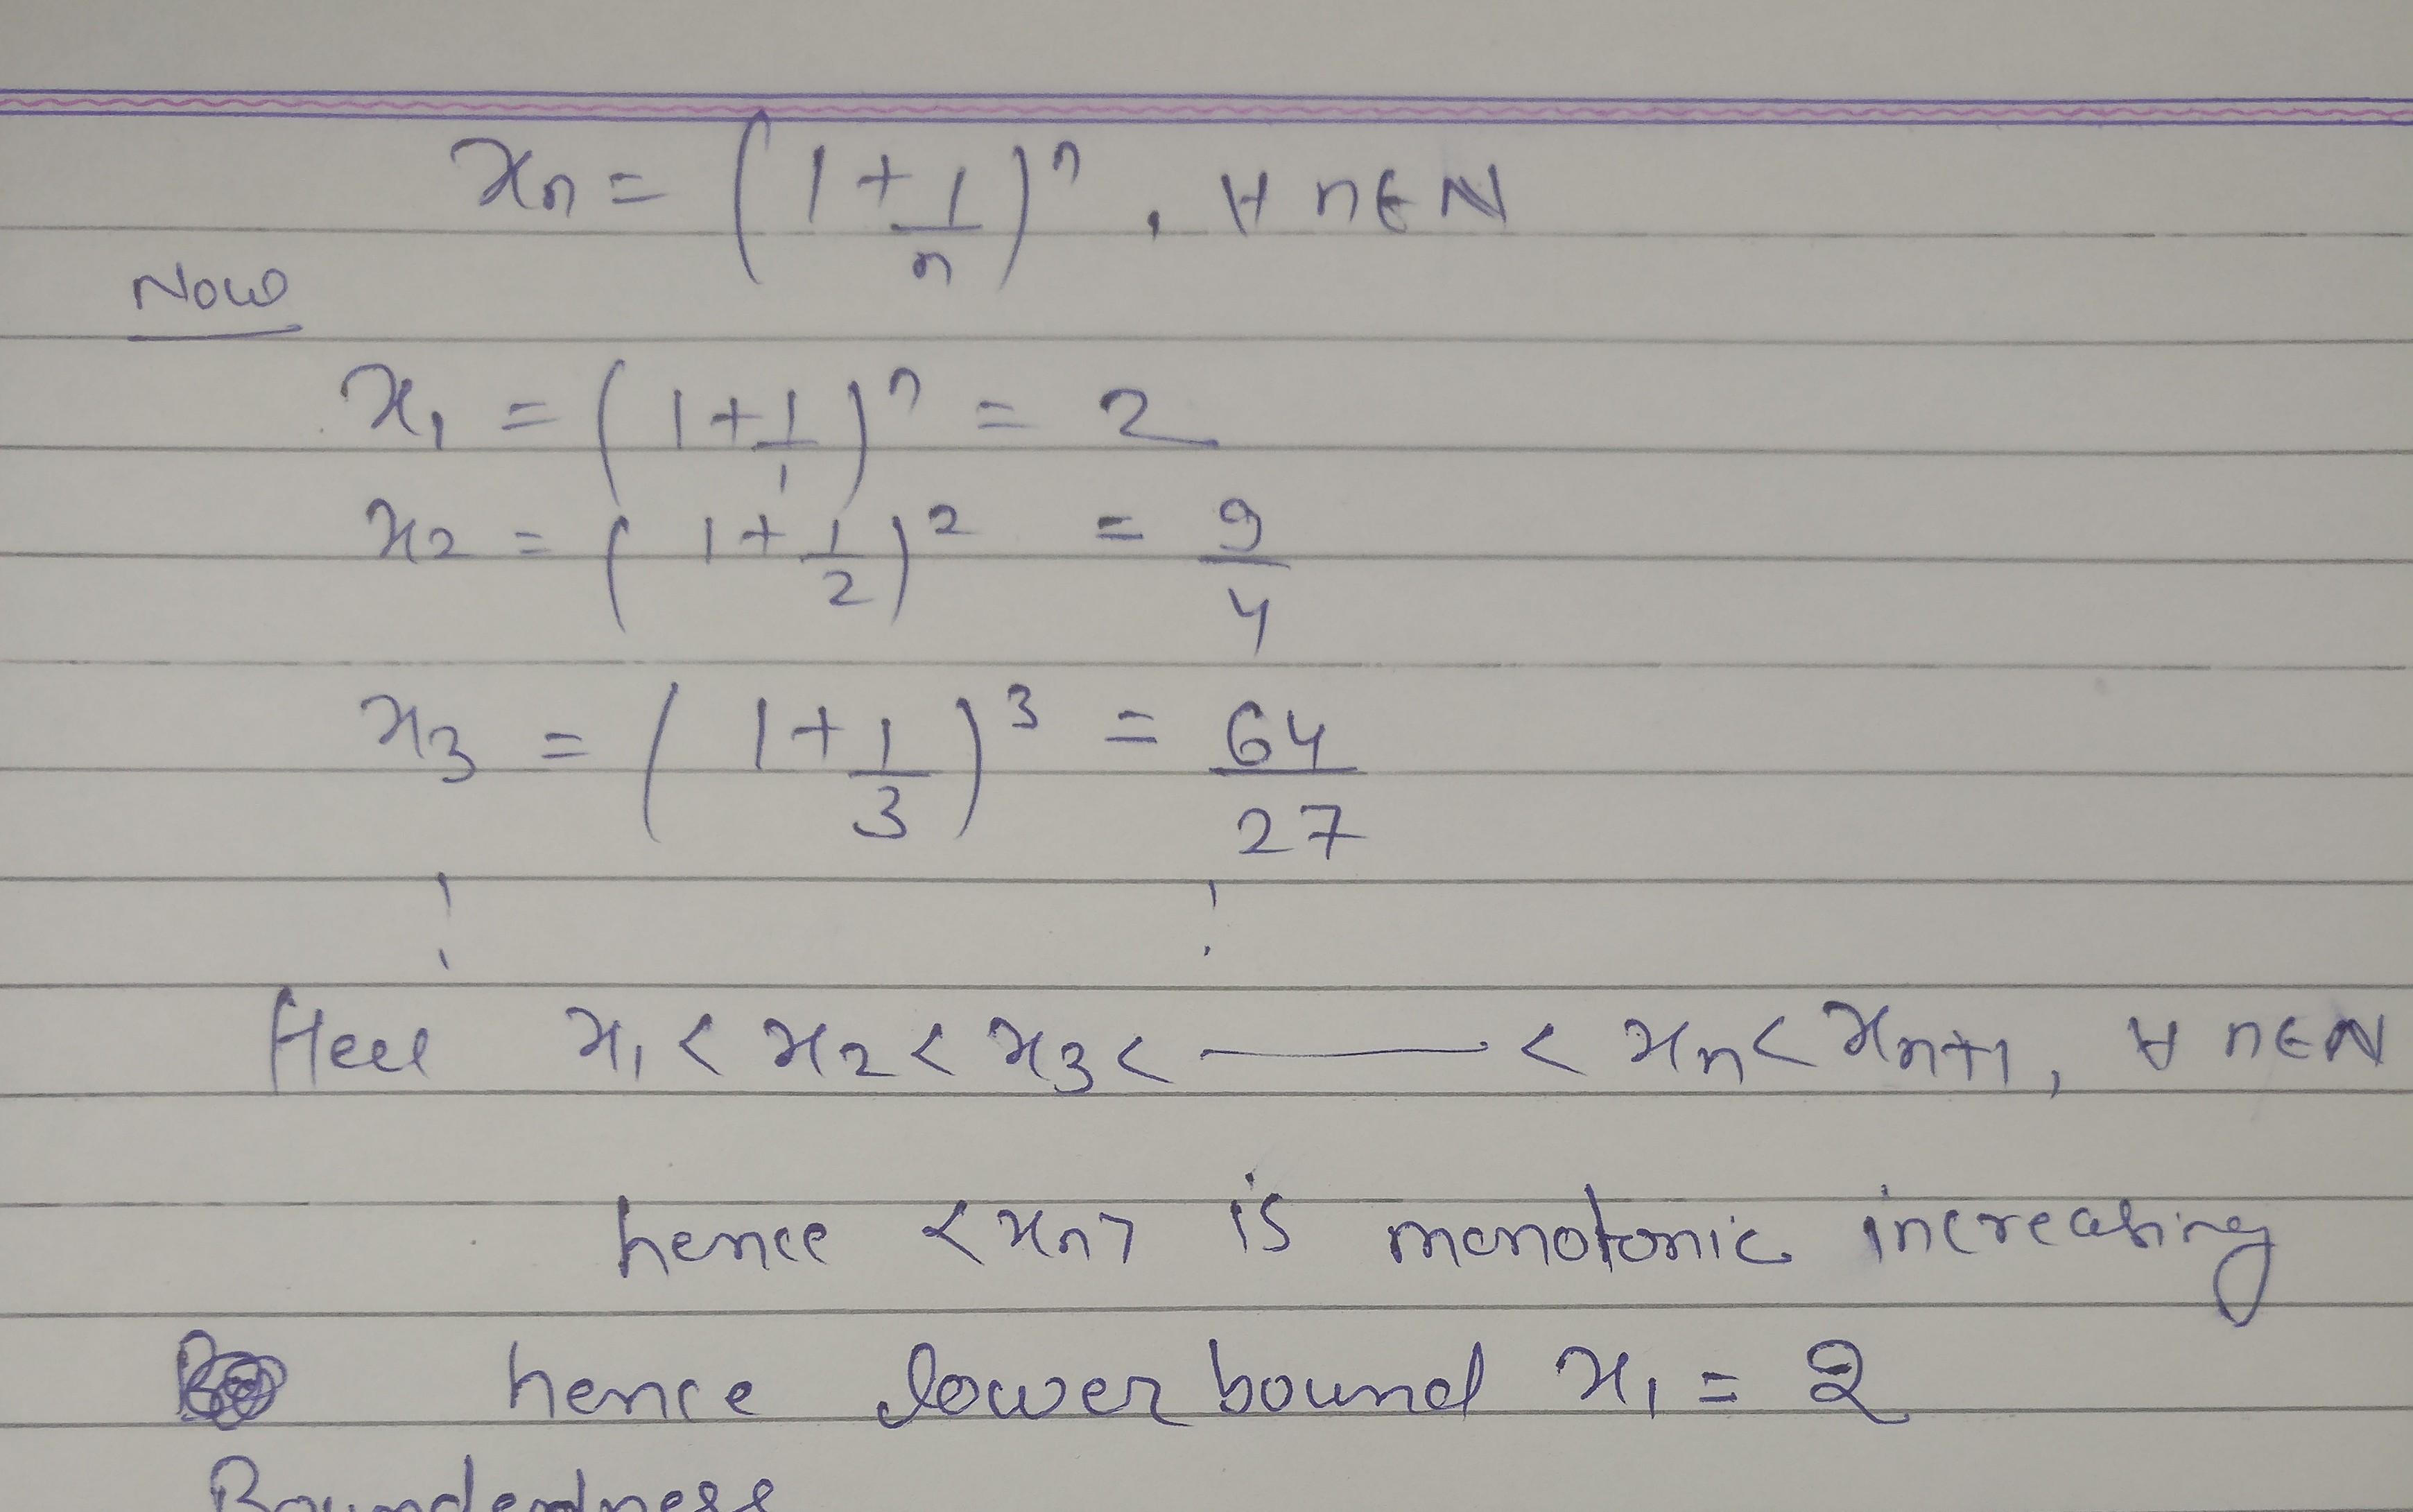 xₙ = (1 + 1/n)ⁿ, ∀ n∈N
Now
x₁ = (1 + 1/1)ⁿ = 2
x₂ = (1 + 1/2)² = 9/4
x₃ = (1 + 1/3)³ = 64/27
Here x₁ < x₂ < x₃ < —— < xₙ < xₙ₊₁, ∀ n∈N
hence <xₙ> is monotonic increasing
hence lower bound x₁ = 2
Boundedness